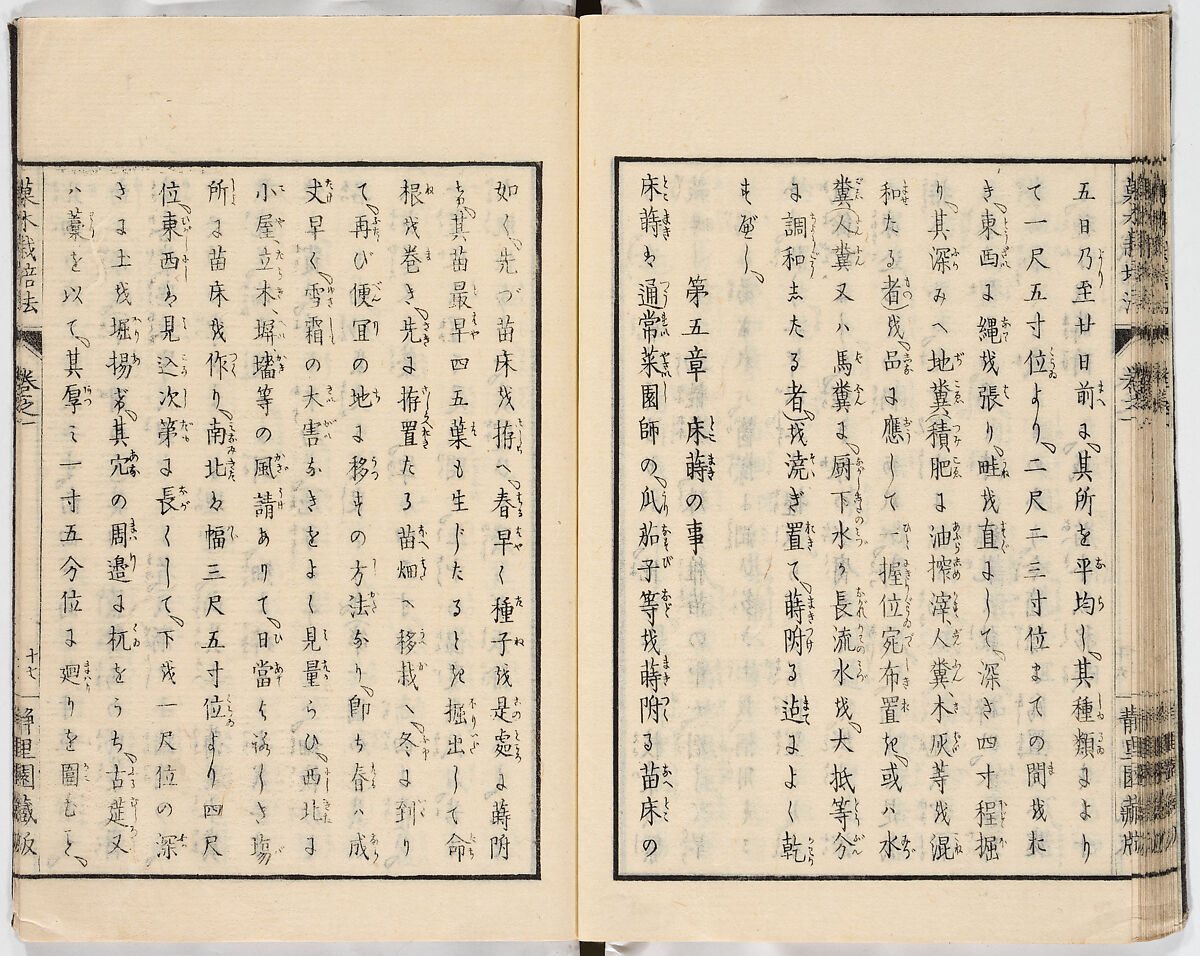 菓木栽培法 巻之一 靜里園藏版
五日乃至廿日前に其所を平均し其種類により
て一尺五寸位より二尺二三寸位までの間をお
き東西に縄を張り畦を直にして深さ四寸程掘
り其深みへ地糞積肥に油搾滓人糞木灰等を混
和たる者を品に應して一握位宛布置き或ハ水
糞人糞又ハ馬糞に厨下水か長流水を大抵等分
に調和したる者を澆ぎ置て蒔附る迠によく乾
すべし
第五章 床蒔の事
床蒔は通常菜園師の瓜茄子等を蒔附る苗床の
如く先づ苗床を拵へ春早く種子を是處に蒔附
其苗最早四五葉も生じたるとき掘出して命
根を巻き先に拵置たる苗畑へ移栽へ冬に到り
て再び便宜の地に移すの方法なり卽ち春ハ成
丈早く雪霜の大害なきをよく見量らひ西北に
小屋立木塀墻等の風請ありて日當よろしき塲
所に苗床を作り南北は幅三尺五寸位より四尺
位東西は見込次第に長くして下を一尺位の深
さに土を堀揚げ其穴の周邉に杭をうち古莚又
ハ藁を以て其厚ミ一寸五分位に廻りを圍むべし
菓木栽培法 巻之一 十七 靜里園藏版